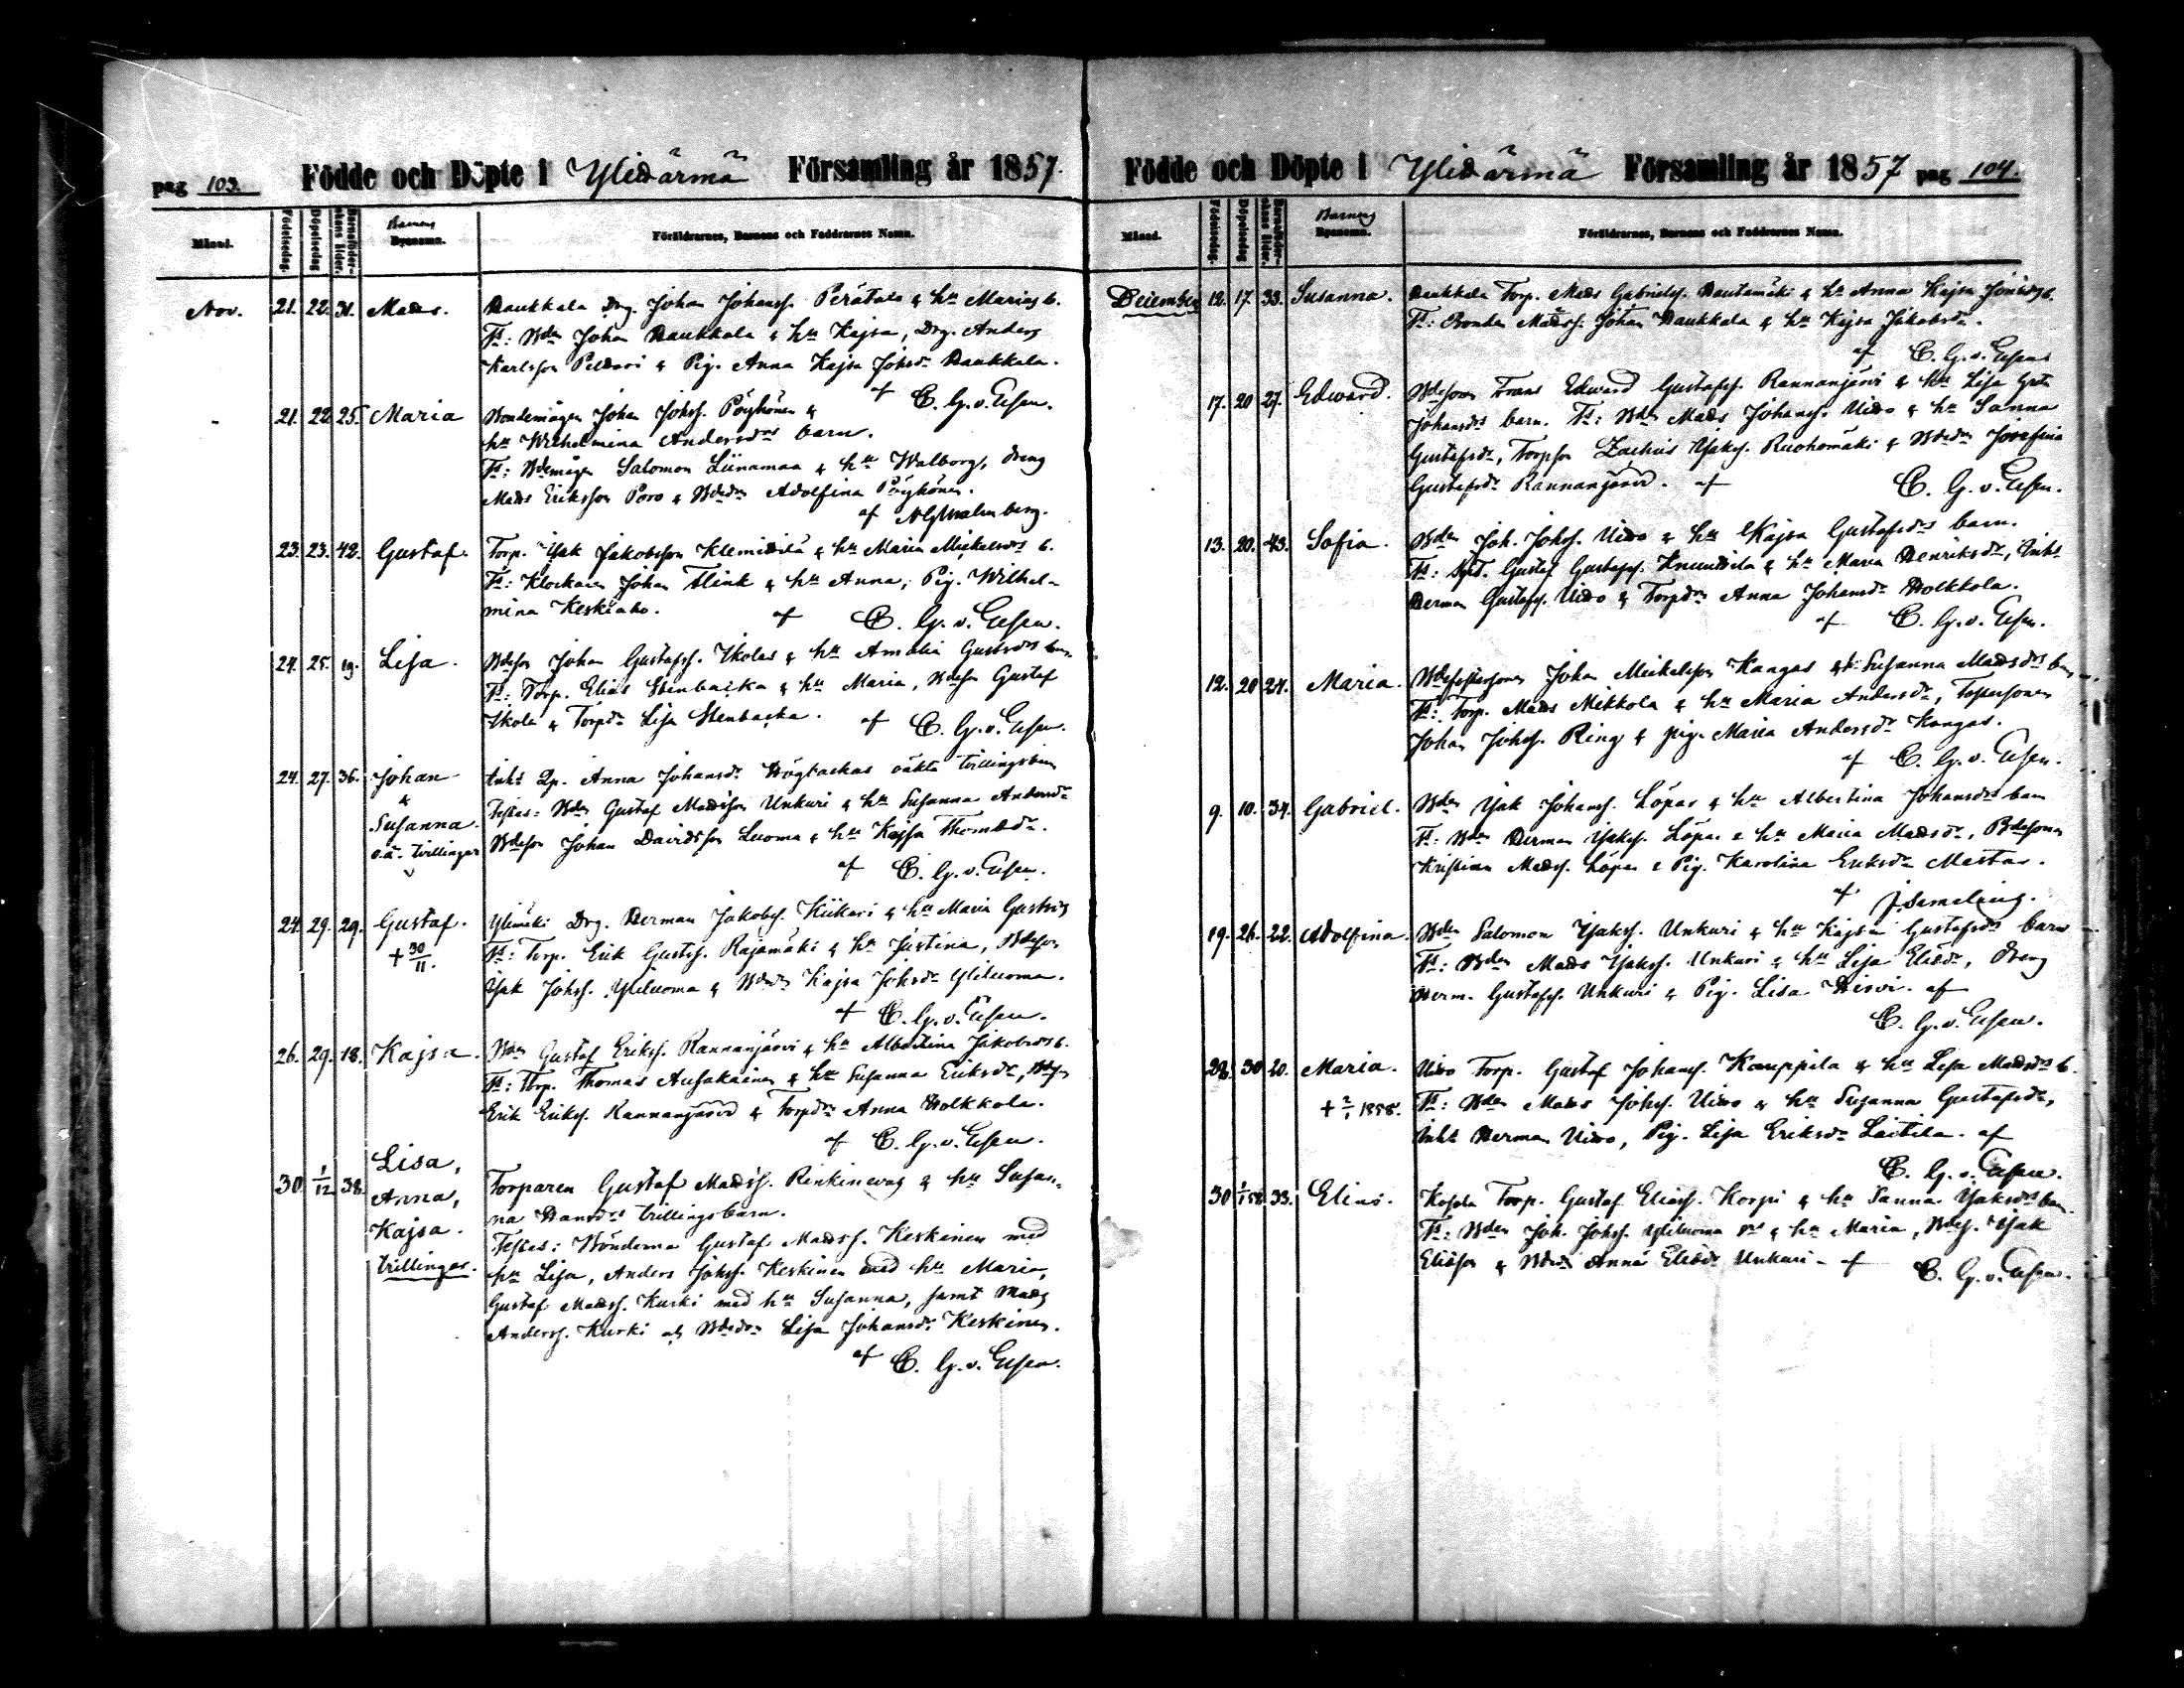 pag 103. Födde och Döpte i Ylidärmä Församling år 1857.
Månad. Födelsedag. Döpelsedag Barnaföderskans ålder. Barnens Bynamn. Föräldrarnes, Barnens och Faddrarnes Namn.
Nov. 21. 22. 31. Mads. Haukkala Drg. Johan Johanss. Perätalo & hu Marias b.
Ts: Bdn Johan Haukkala & hu Kajsa, Drg. Anders
Karlsson Peldari & Pig. Anna Kajsa Johsdr Haukkala.
af C. G. v. Essen.
- 21. 22. 25. Maria Bondemågen Johan Johss. Pöyhönen &
hu Wilhelmina Andersdrs barn.
Ts: Bdemågen Salomon Liinamaa & hu Walborg, dreng
Mads Eriksson Poro & Bdedr Adolfina Pöyhönen.
af Malmberg.
23. 23. 42. Gustaf. Torp. Isak Jakobsson Klemittilä & hu Maria Mickelsdrs b.
Ts: Klockaren Johan Flink & hu Anna, Pig. Wilhel-
mina Keskiaho. af C. G. v. Essen.
24. 25. 19. Lisa. Bdeson Johan Gustafss. Ikolas & hu Amalia Gustsdrs barn
Ts: Torp. Elias Stenbacka & hu Maria, Bdeson Gustaf
Ikola & Torpdr Lisa Stenbacka. af C. G. v. Essen.
24. 27. 36. Johan Inhs Qp. Anna Johansdr Högbackas oäkta tvillingsbarn
& Testes: Bdn Gustaf Madsson Unkuri & hu Susanna Andersdr
Susanna. Bdeson Johan Davidsson Luoma & hu Kajsa Thomasdr.
o.ä. tvillingar af C. G. v. Essen.
24. 29. 29. Gustaf. Ylimäki Drg. Herman Jakobss. Kiikeri & hu Maria Gustsdrs
+ 30/11. Ts: Torp. Erik Gustss. Rajamäki & hu Justina, Bdeson
Isak Johss. Yliluoma & Bdedr Kajsa Johsdr Yliluoma.
af C. G. v. Essen.
26. 29. 18. Kajsa. Bdn Gustaf Erikss. Rannanjärvi & hu Albertina Jakobsdrs b.
Ts: Torp. Thomas Ansakainen & hu Susanna Eriksdr, Bdes.
Erik Erikss. Rannanjärvi & Torpdr Anna Holkkola.
af C. G. v. Essen.
30 1/12 38. Lisa, Torparen Gustaf Madss. Rinkineva & hu Susan-
Anna, na Hansdrs trillingsbarn.
Kajsa. Testes: Bönderna Gustaf Madss. Keskinen med
trillingar. hu Lisa, Anders Johss. Keskinen med hu Maria,
Gustaf Madss. Kurki med hu Susanna, samt Mads
Anderss. Kurki och Bdedr Lisa Johansdr Keskinen.
af C. G. v. Essen.
Födde och Döpte i Ylidärmä Församling år 1857 pag 104.
Månad. Födelsedag. Döpelsedag Barnaföderskans ålder. Barnens Bynamn. Föräldrarnes, Barnens och Faddrarnes Namn.
December 12. 17. 33. Susanna. Haukkala Torp. Mads Gabrielss. Hautamäki & hu Anna Kajsa Jonasdrs b.
Ts: Bonden Madss. Johan Haukkala & hu Kajsa Jakobsdr.
af C. G. v. Essen
17. 20 27. Edward. Bdesonen Frans Edward Gustafss. Rannanjärvi & hu Lisa Greta
Johansdrs barn. Ts: Bdn Mads Johanss. Uitto & hu Sanna
Gustafsdr, Torpson Zachris Isakss. Ruohomäki & Bdedr Josefina
Gustafsdr Rannanjärvi. af C. G. v. Essen.
13. 20. 43. Sofia. Bdn Joh. Johss. Uitto & hu Kajsa Gustafsdrs barn.
Ts: Gustaf Gustafss. Knuuttila & hu Maria Henriksdr, Inhs
Herman Gustafss. Uitto & Torpdr Anna Johansdr Holkkola.
af C. G. v. Essen.
12. 20 24. Maria. Johan Mickelsson Kangas & h. Susanna Madsdrs barn
Ts: Torp. Mads Mikkola & hu Maria Andersdr, Torpersonen
Johan Johss. Ring & pig. Maria Andersdr Kangas.
af C. G. v. Essen.
9. 10. 34. Gabriel. Bdn Isak Johanss. Löpas & hu Albertina Johansdrs barn
Ts: Bdn Herman Isakss. Löpas & hu Maria Madsdr, Bdesonen
Kristian Madss. Löpas & Pig. Karolina Eriksdr Mestar.
af J. Sameling.
19. 26. 22. Adolfina. Bdn Salomon Isakss. Unkuri & hu Kajsa Gustafsdrs barn
Ts: Bdn Mads Isakss. Unkuri & hu Lisa Eliedr, dreng
Herm. Gustafss. Unkuri & Pig. Lisa Hirvi. af
C. G. v. Essen.
28. 30 20. Maria. Uitto Torp. Gustaf Johanss. Kamppila & hu Lisa Madsdrs b.
+ 2/1 1858. Ts: Bdn Mads Johss. Uitto & hu Susanna Gustafsdr,
Inhs Herman Uitto, Pig. Lisa Eriksdr Laitila. af
C. G. v. Essen.
30 1/1 58. 33. Elias. Kosola Torp. Gustaf Eliass. Korpi & hu Sanna Isaksdrs barn.
Ts: Bdn Joh. Johss. Yliluoma & hu Maria, Bdes. Isak
Eliasson & Bdedr Anna Eliedr Unkuri - af C. G. v. Essen.